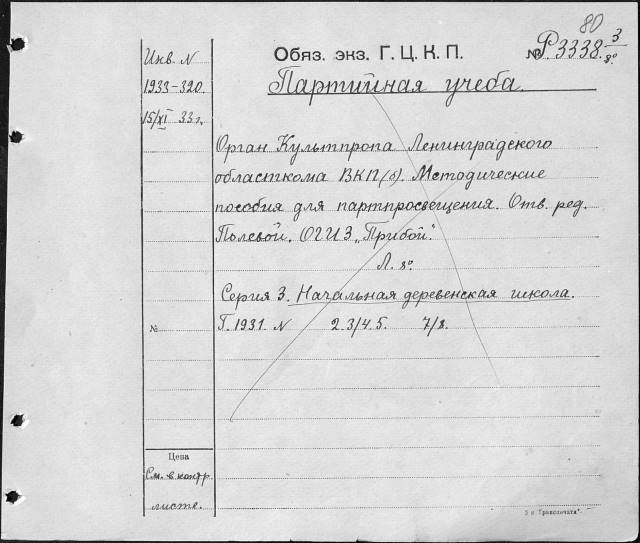 80
Инв. N
Обяз. экз. Г. Ц. К. П.
№ Р3338 3/8°
1933-320.
Партийная учеба.
15/XI 33 г.
Орган Культпропа Ленинградского
областкома ВКП(б). Методические
пособия для партпросвещения. Отв. ред.
Полевой. ОГИЗ „Прибой".
Л. 8°
Серия 3. Начальная деревенская школа.
№
Г. 1931. N 2.3/4.5. 7/8.
Цена
См. в контр.
листе.